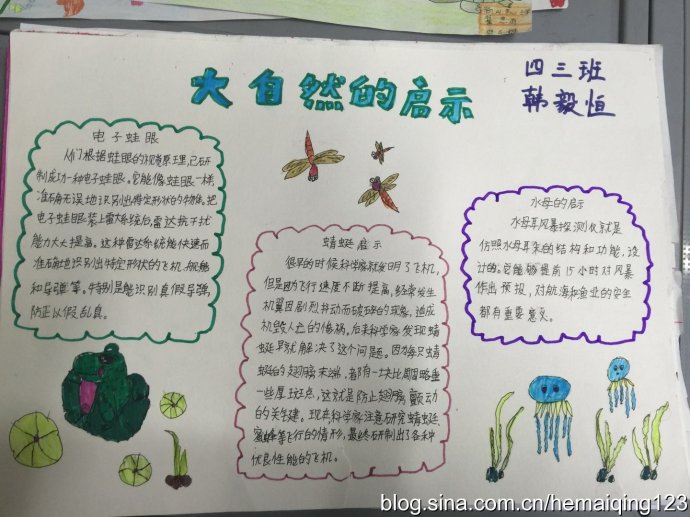 大自然的启示
四三班
韩毅恒
电子蛙眼
人们根据蛙眼的视觉原理,已研
制成功一种电子蛙眼。它能像蛙眼一样
准确无误地识别出特定形状的物体。把
电子蛙眼装上雷达系统后,雷达抗干扰
能力大大提高。这种雷达系统能快速而
准确地识别出特定形状的飞机、舰船
和导弹等。特别是能识别真假导弹,
防止以假乱真。
蜻蜓启示
很早的时候科学家就发明了飞机,
但是因飞行速度不断提高,经常发生
机翼因剧烈抖动而破碎的现象,造成
机毁人亡的惨祸。后来科学家发现蜻
蜓早就解决了这个问题。因为每只蜻
蜓的翅膀末端,都有一块比周围略重
一些厚斑点,这就是防止翅膀颤动
的关键。现在科学家注意研究蜻蜓、
蜜蜂等飞行的情形,最终研制出了各种
优良性能的飞机。
水母的启示
水母耳风暴探测仪就是
仿照水母耳朵的结构和功能,设
计的。它能够提前15小时对风暴
作出预报,对航海和渔业的安全
都有重要意义。
blog.sina.com.cn/hemaiqing123